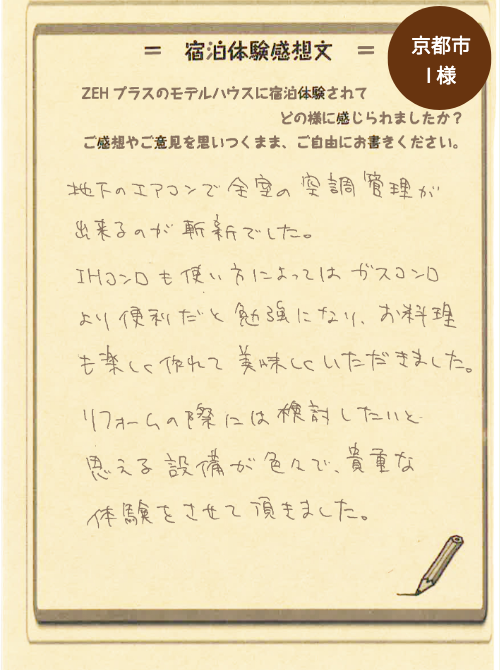 = 宿泊体験感想文 =
京都市
I様
ZEHプラスのモデルハウスに宿泊体験されて
どの様に感じられましたか？
ご感想やご意見を思いつくまま、ご自由にお書きください。
地下のエアコンで全室の空調管理が
出来るのが斬新でした。
IHコンロも使い方によってはガスコンロ
より便利だと勉強になり、お料理
も楽しく作れて美味しくいただきました。
リフォームの際には検討したいと
思える設備が色々で、貴重な
体験をさせて頂きました。